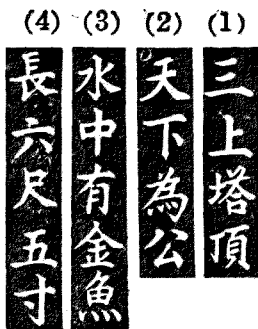 (1) 三上塔頂
(2) 天下為公
(3) 水中有金魚
(4) 長六尺五寸